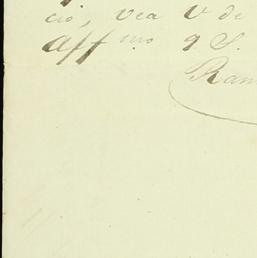 cio, vea V de
Aff mo q S.
Ram